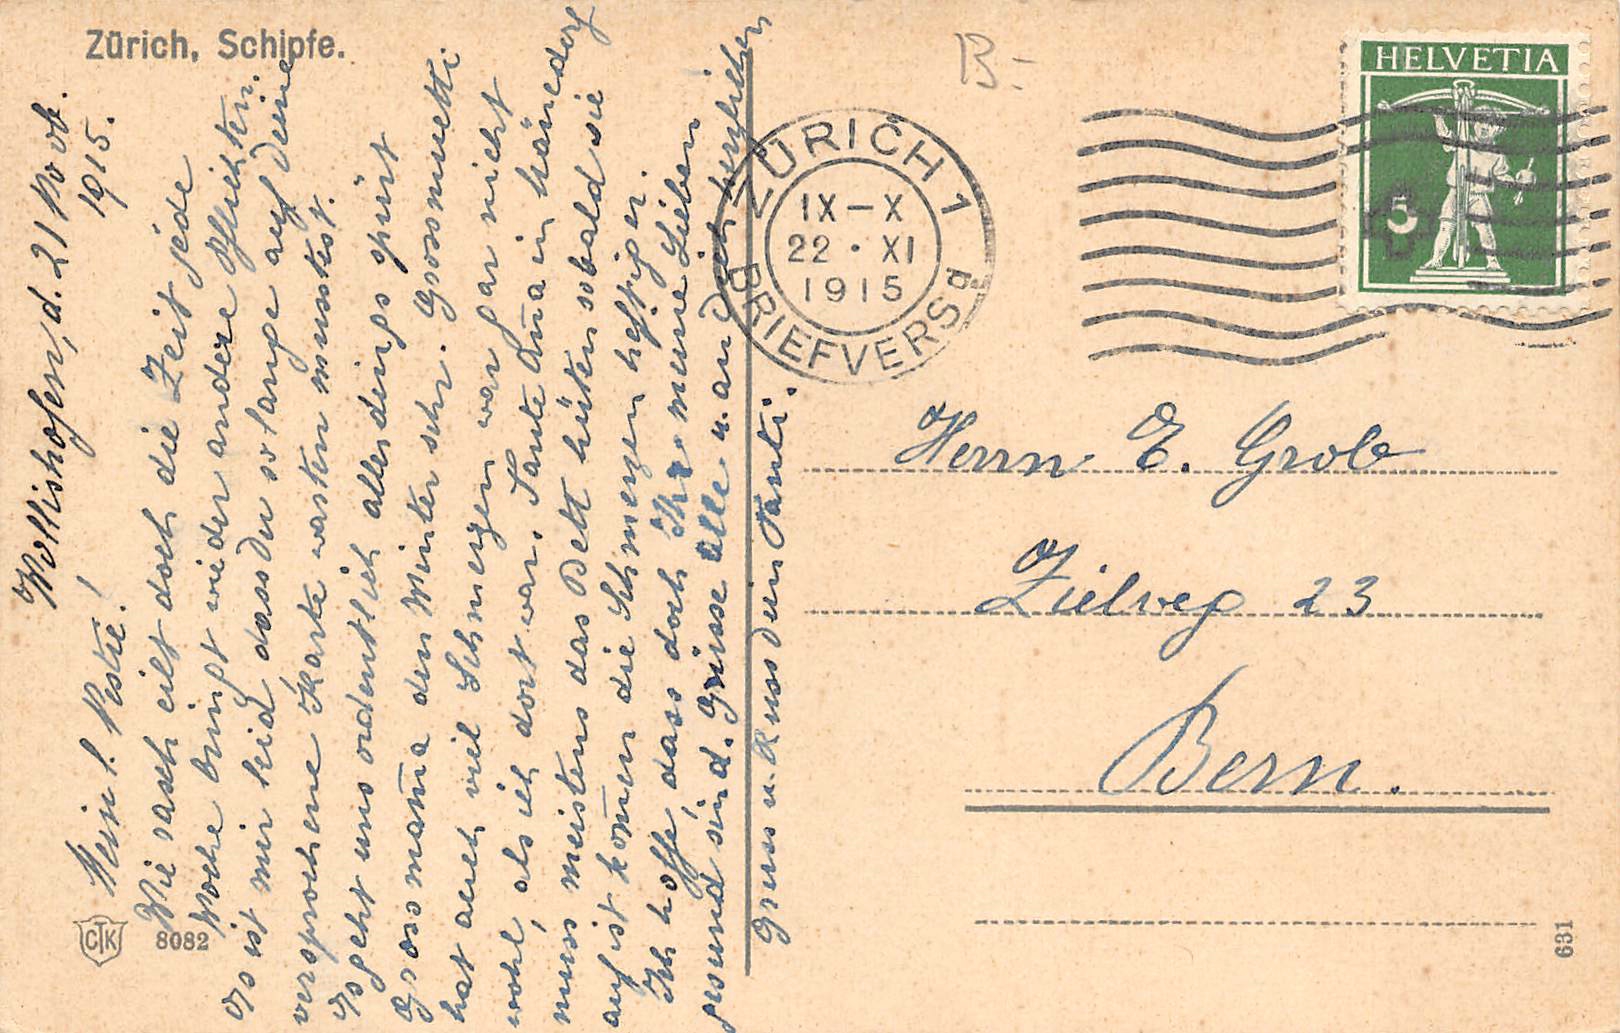 Zürich, Schipfe.
Wollishofen, d. 21 Nov.
1915.
Mein l. !
Wie rasch eilt doch die Zeit jede
Woche bringt wieder andere Pflichten.
Es ist mir leid dass Du so lange auf Deine
versprochene Karte warten musstest.
Es geht uns ordentlich allerdings spürt
Grossmama den Winter sehr. Grossmuetti
hat auch viel Schmerzen war gar nicht
wohl, als ich dort war. Tante Anna in Mänedorf
muss meistens das Bett hüten sobald sie
auf ist kom̄en die Schmerzen heftiger.
Ich hoffe, dass doch Ihr meine Lieben
gesund sind. Grüsse alle u. an Dich herzlichen
Gruss u. Kuss Dein Tanti.
CTK
8082
ZÜRICH 1
IX–X
22 · XI
1915
BRIEFVERSd
HELVETIA
5
B.
Herrn E. Grob
Zielweg 23
Bern.
631